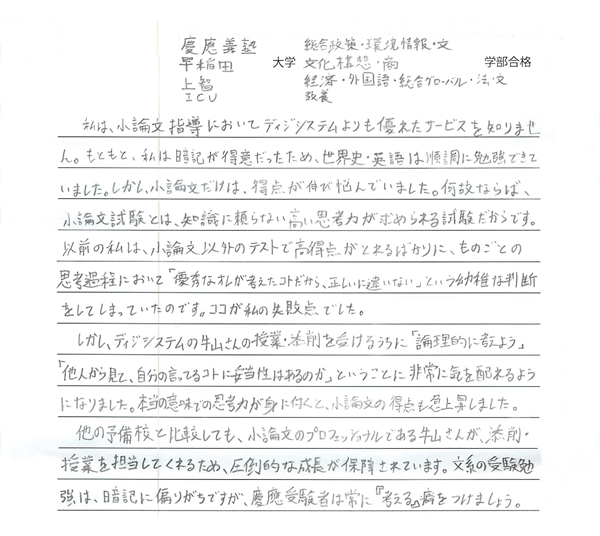 慶應義塾 総合政策・環境情報・文
早稲田 大学 文化構想・商 学部合格
上智 経済・外国語・総合グローバル・法・文
ICU 教養
私は、小論文指導においてディジシステムよりも優れたサービスを知りませ
ん。もともと、私は暗記が得意だったため、世界史・英語は順調に勉強できて
いました。しかし、小論文だけは、得点が伸び悩んでいました。何故ならば、
小論文試験とは、知識に頼らない高い思考力が求められる試験だからです。
以前の私は、小論文以外のテストで高得点がとれるばかりに、ものごとの
思考過程において「優秀なオレが考えたコトだから、正しいに違いない」という幼稚な判断
をしてしまっていたのです。ココが私の失敗点でした。
しかし、ディジシステムの牛山さんの授業・添削を受けるうちに「論理的に考えよう」
「他人から見て、自分の言ってるコトに妥当性はあるのか」ということに非常に気を配れるよう
になりました。本当の意味での思考力が身に付くと、小論文の得点も急上昇しました。
他の予備校と比較しても、小論文のプロフェッショナルである牛山さんが、添削・
授業を担当してくれるため、圧倒的な成長が保障されています。文系の受験勉
強は、暗記に偏りがちですが、慶應受験者は常に『考える』癖をつけましょう。